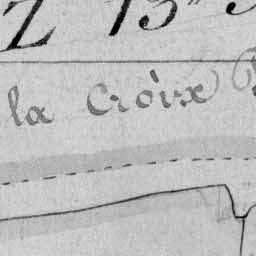 Z 13
la Croix